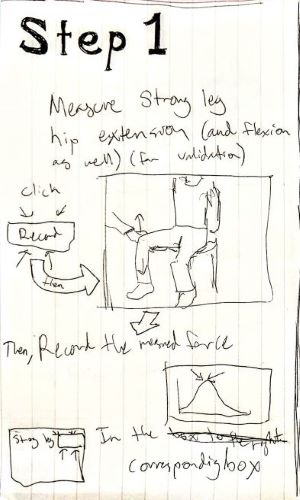 Step 1
Measure Strong leg
hip extension (and flexion
as well) (for validation)
click
Record
then
Then, Record the measured force
In the box to the right
corresponding box
Strong leg